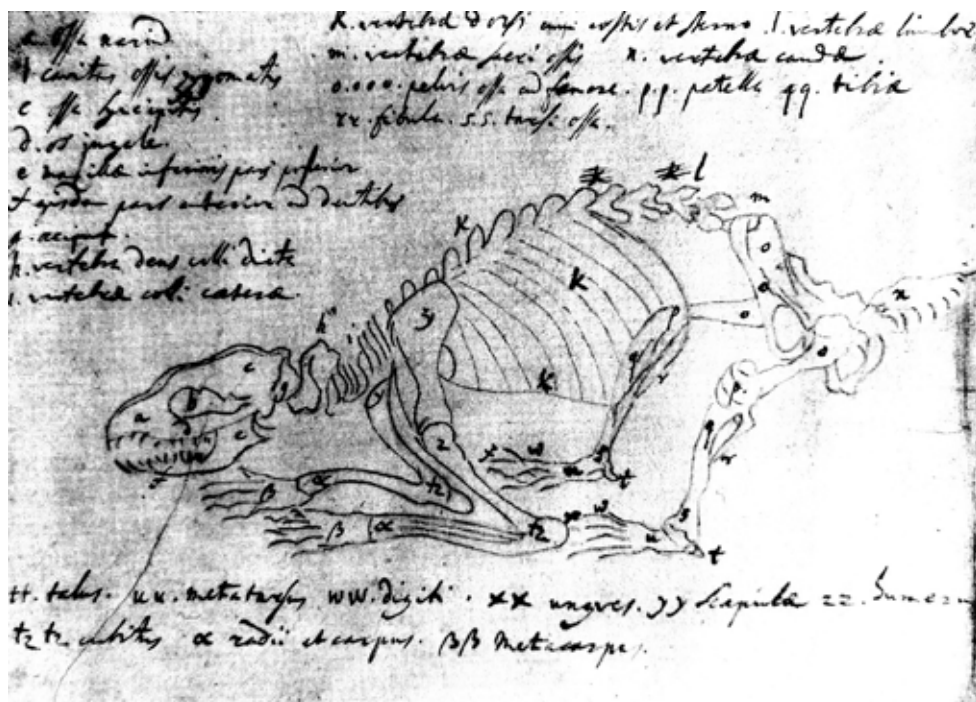 a ossa narium
b cavitas ossis zygomatis
c ossa syncipitis.
d. os jugale.
e maxillæ inferioris pars posterior
f ejusdem pars anterior cum dentibus
h. vertebra dens colli dicta
i. vertebræ colli cæteræ
k. vertebræ dorsi cum costis et sterno. l. vertebræ
m. vertebræ sacri ossis n. vertebræ caudæ
o.o.o.o. pelvis ossa p.p. patella qq. tibiæ
rr. fibula. s.s. tarsi ossa.
k l
m
k
k
h
i
y
o
o
o
n
c
g
b
a
d
e
f
k
q
r
p
z
s
t
w
u
x
β α
β α
tz
tz
tt. talus. uu. metatarsus ww. digiti. xx ungves. yy scapulæ zz. humerus
tz tz cubitus α radii et carpus. ββ metacarpus.